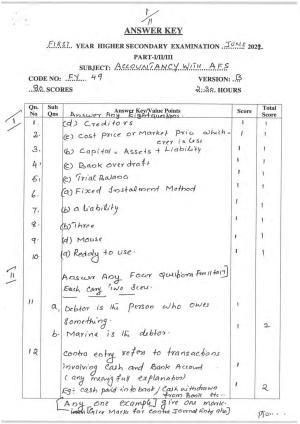 1
11
ANSWER KEY
FIRST YEAR HIGHER SECONDARY EXAMINATION JUNE 2022
PART-I/II/III
SUBJECT: ACCOUNTANCY WITH AFS
CODE NO: FY 49 VERSION: B
80 SCORES 2:30 HOURS
Qn. No Sub Qns Answer Key/Value Points Score Total Score
I Answer Any Eight questions
1. (d) Creditors 1 1
2. (c) Cost price or Market price which ever is less 1 1
3. (b) Capital = Assets + Liability 1 1
4. (c) Bank overdraft 1 1
5. (c) Trial Balance 1 1
6. (a) Fixed Instalment Method 1 1
7. (b) a Liability 1 1
8. (b) Three 1 1
9. (d) Mouse 1 1
10. (a) Ready to use. 1 1
II Answer Any Four questions From 11 to 17
Each carry two scores.
11 a. Debtor is the person who owes
something. 2
b. Marine is the debtor.
12 Contra entry refer to transactions
involving Cash and Bank Account
(any meaningful explanation)
Eg: cash paid into bank / Cash withdrawn
from Bank etc. 2
[Any one example] give one mark